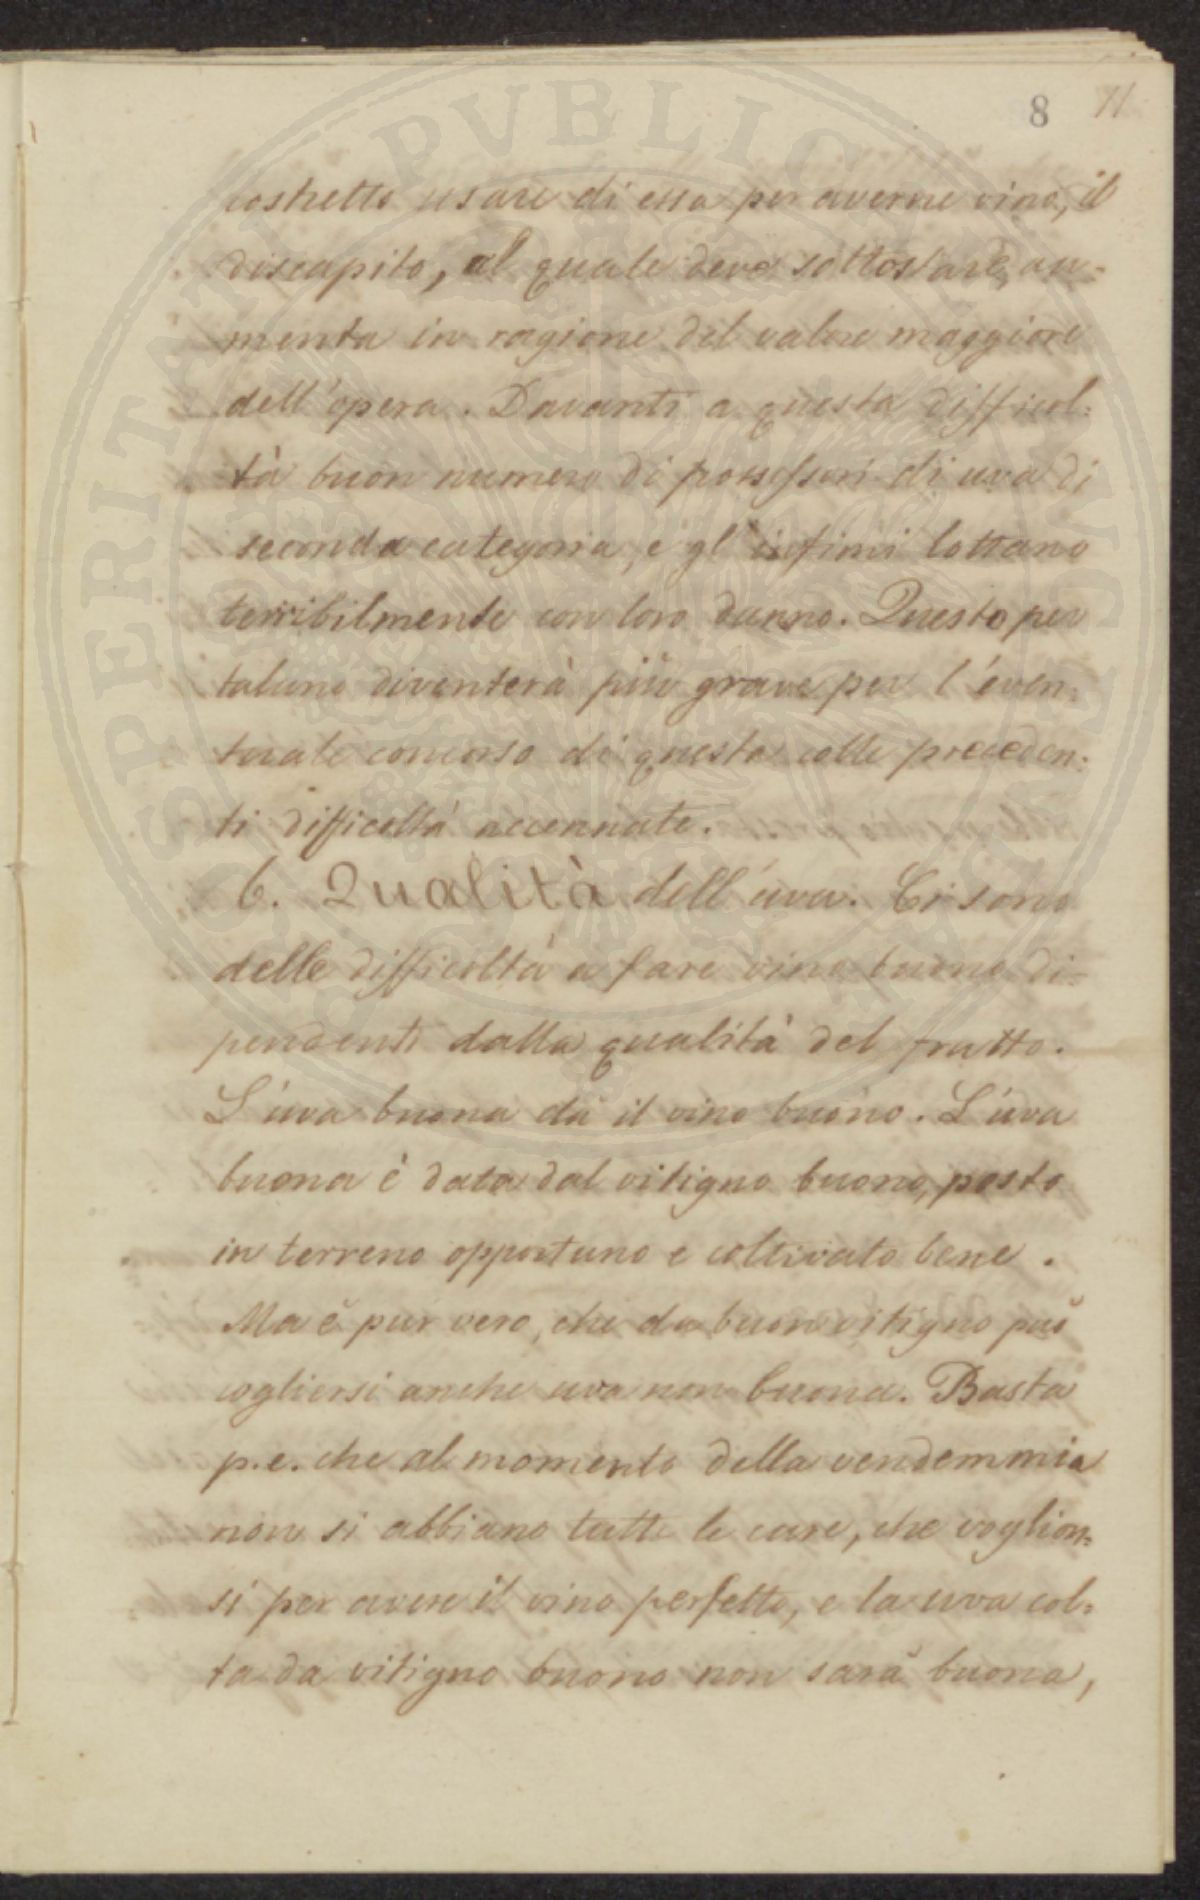 8 11
costretto usare di essa per averne vino, il
discapito, al quale deve sottostare, au=
menta in ragione del valore maggiore
dell'opera. Davanti a questa difficol=
tà buon numero di possessori di uva di
seconda categoria, e gl'infimi lottano
terribilmente con loro danno. Questo per
taluno diventerà più grave per l'even=
tuale concorso di questa colle preceden=
ti difficoltà accennate.
6. Qualità dell'uva. Ci sono
delle difficoltà a fare vino buono di=
pendenti dalla qualità del frutto.
L'uva buona dà il vino buono. L'uva
buona è data dal vitigno buono, posto
in terreno opportuno e coltivato bene.
Ma è pur vero, che da buon vitigno può
cogliersi anche uva non buona. Basta
p.e. che al momento della vendemmia
non si abbiano tutte le cure, che voglion=
si per avere il vino perfetto, e la uva col=
ta da vitigno buono non sarà buona,
PUBLIC